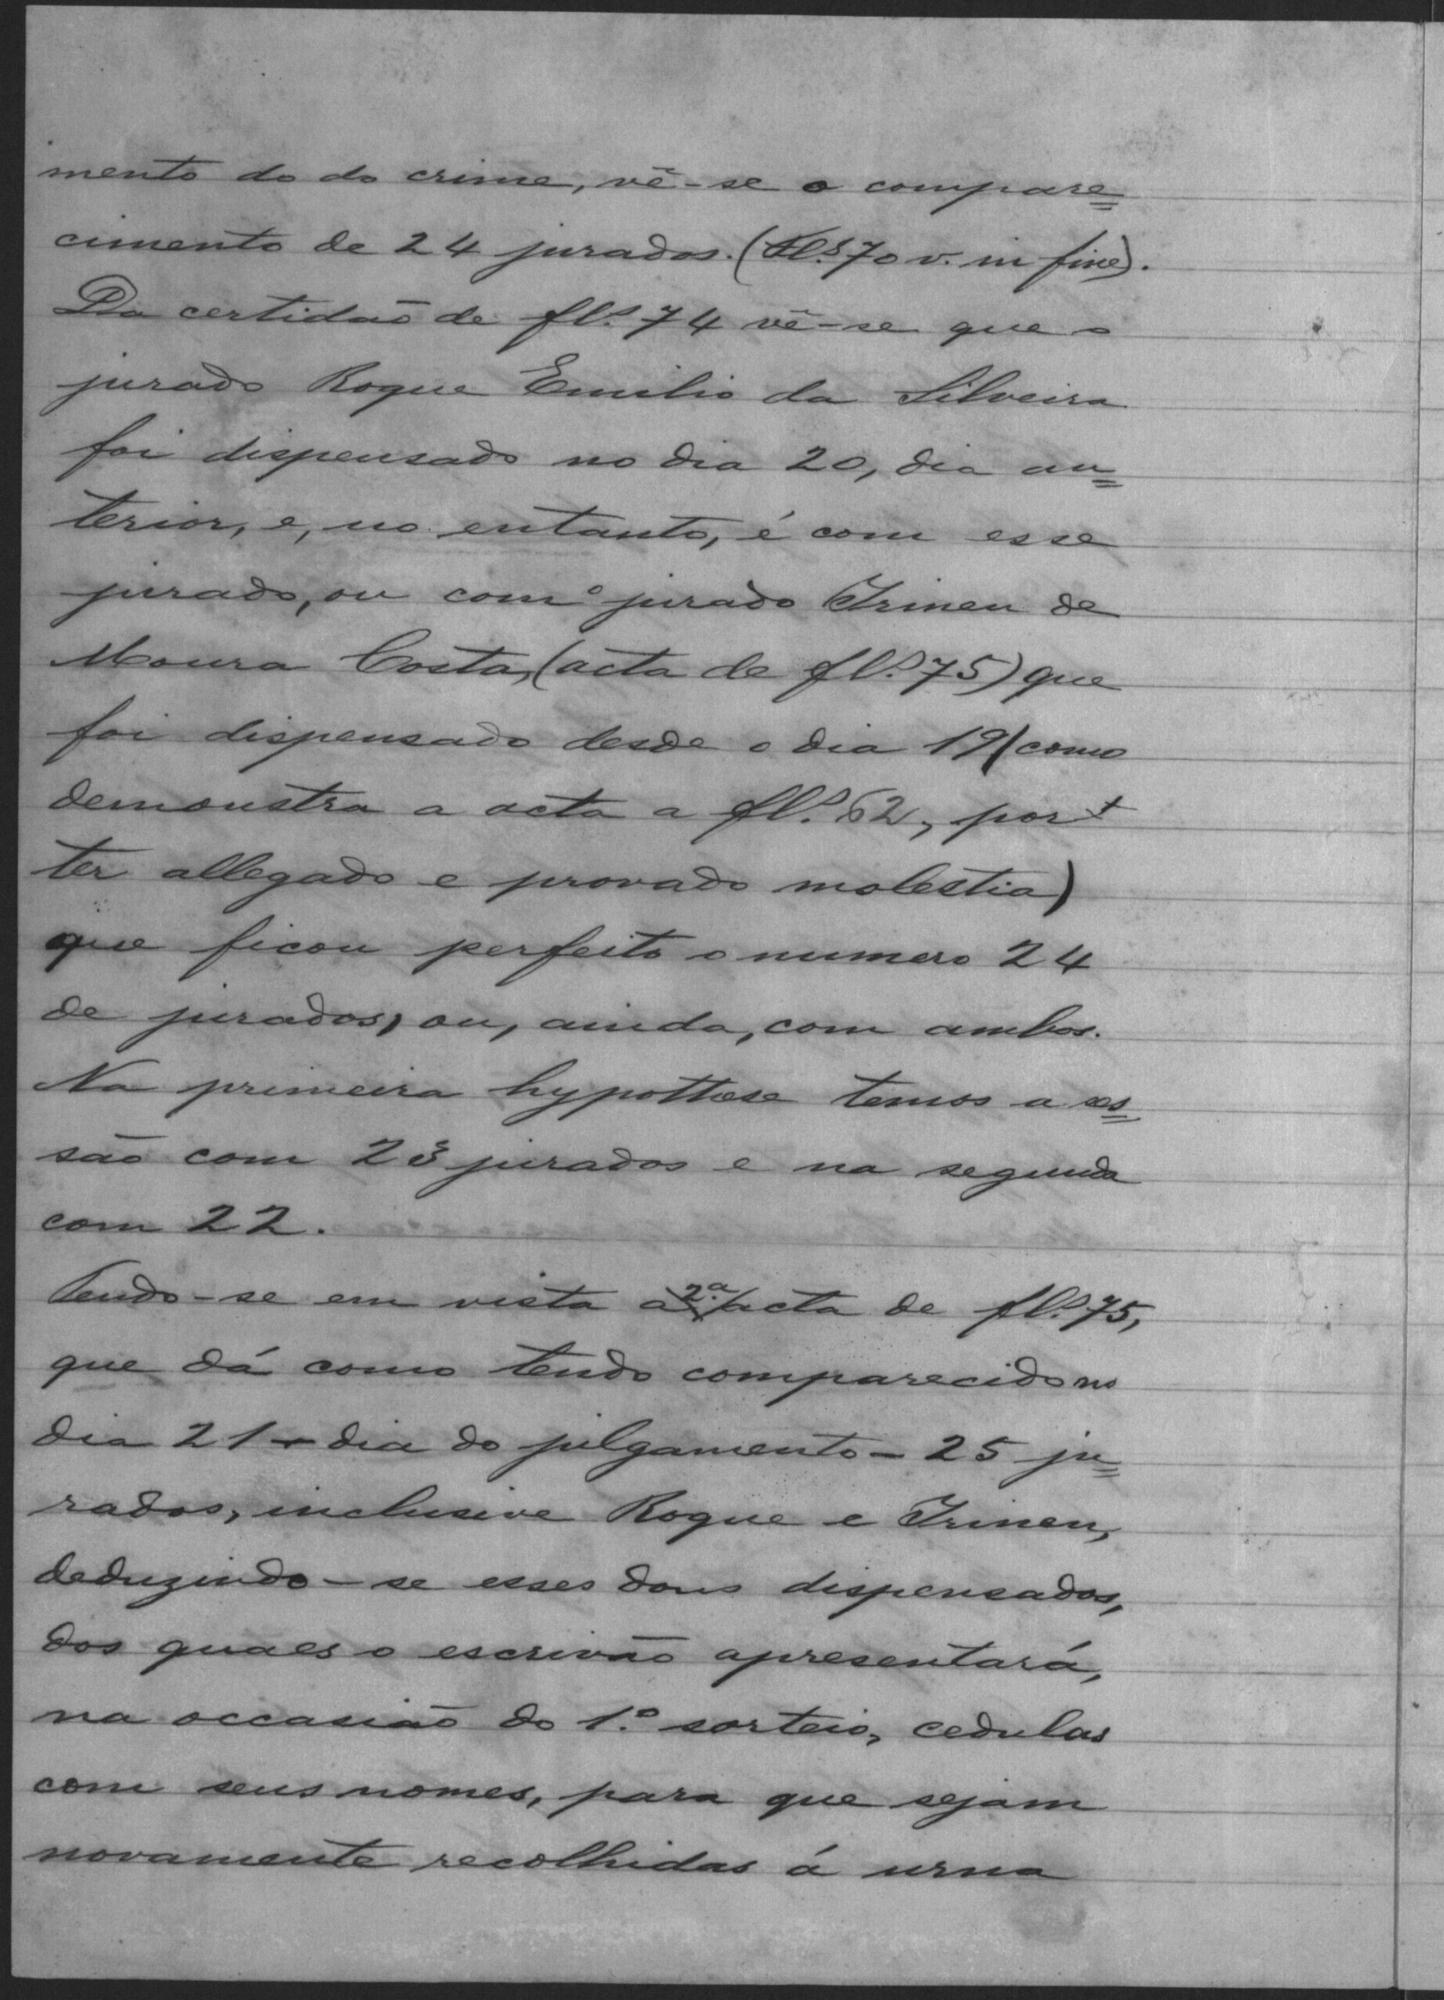 mento do do crime, vê-se o compare=
cimento de 24 jurados. (Fls. 70 v. in fine).
Da certidão de fls. 74 vê-se que o
jurado Roque Emilio da Silveira
foi dispensado no dia 20, dia an=
terior, e, no entanto, é com esse
jurado, ou com o jurado Irineu de
Moura Costa, (acta de fls. 75) que
foi dispensado desde o dia 19 (como
demonstra a acta a fls. 62, por
ter allegado e provado molestia)
que ficou perfeito o numero 24
de jurados, ou, ainda, com ambos.
Na primeira hypothese temos a ses=
são com 23 jurados e na segunda
com 22.
Tendo-se em vista a 2.ª acta de fls. 75,
que dá como tendo comparecido no
dia 21 - dia do julgamento - 25 ju=
rados, inclusive Roque e Irineu,
deduzindo-se esses dous dispensados,
dos quaes o escrivão apresentará,
na occasião do 1.º sorteio, cedulas
com seus nomes, para que sejam
novamente recolhidas á urna